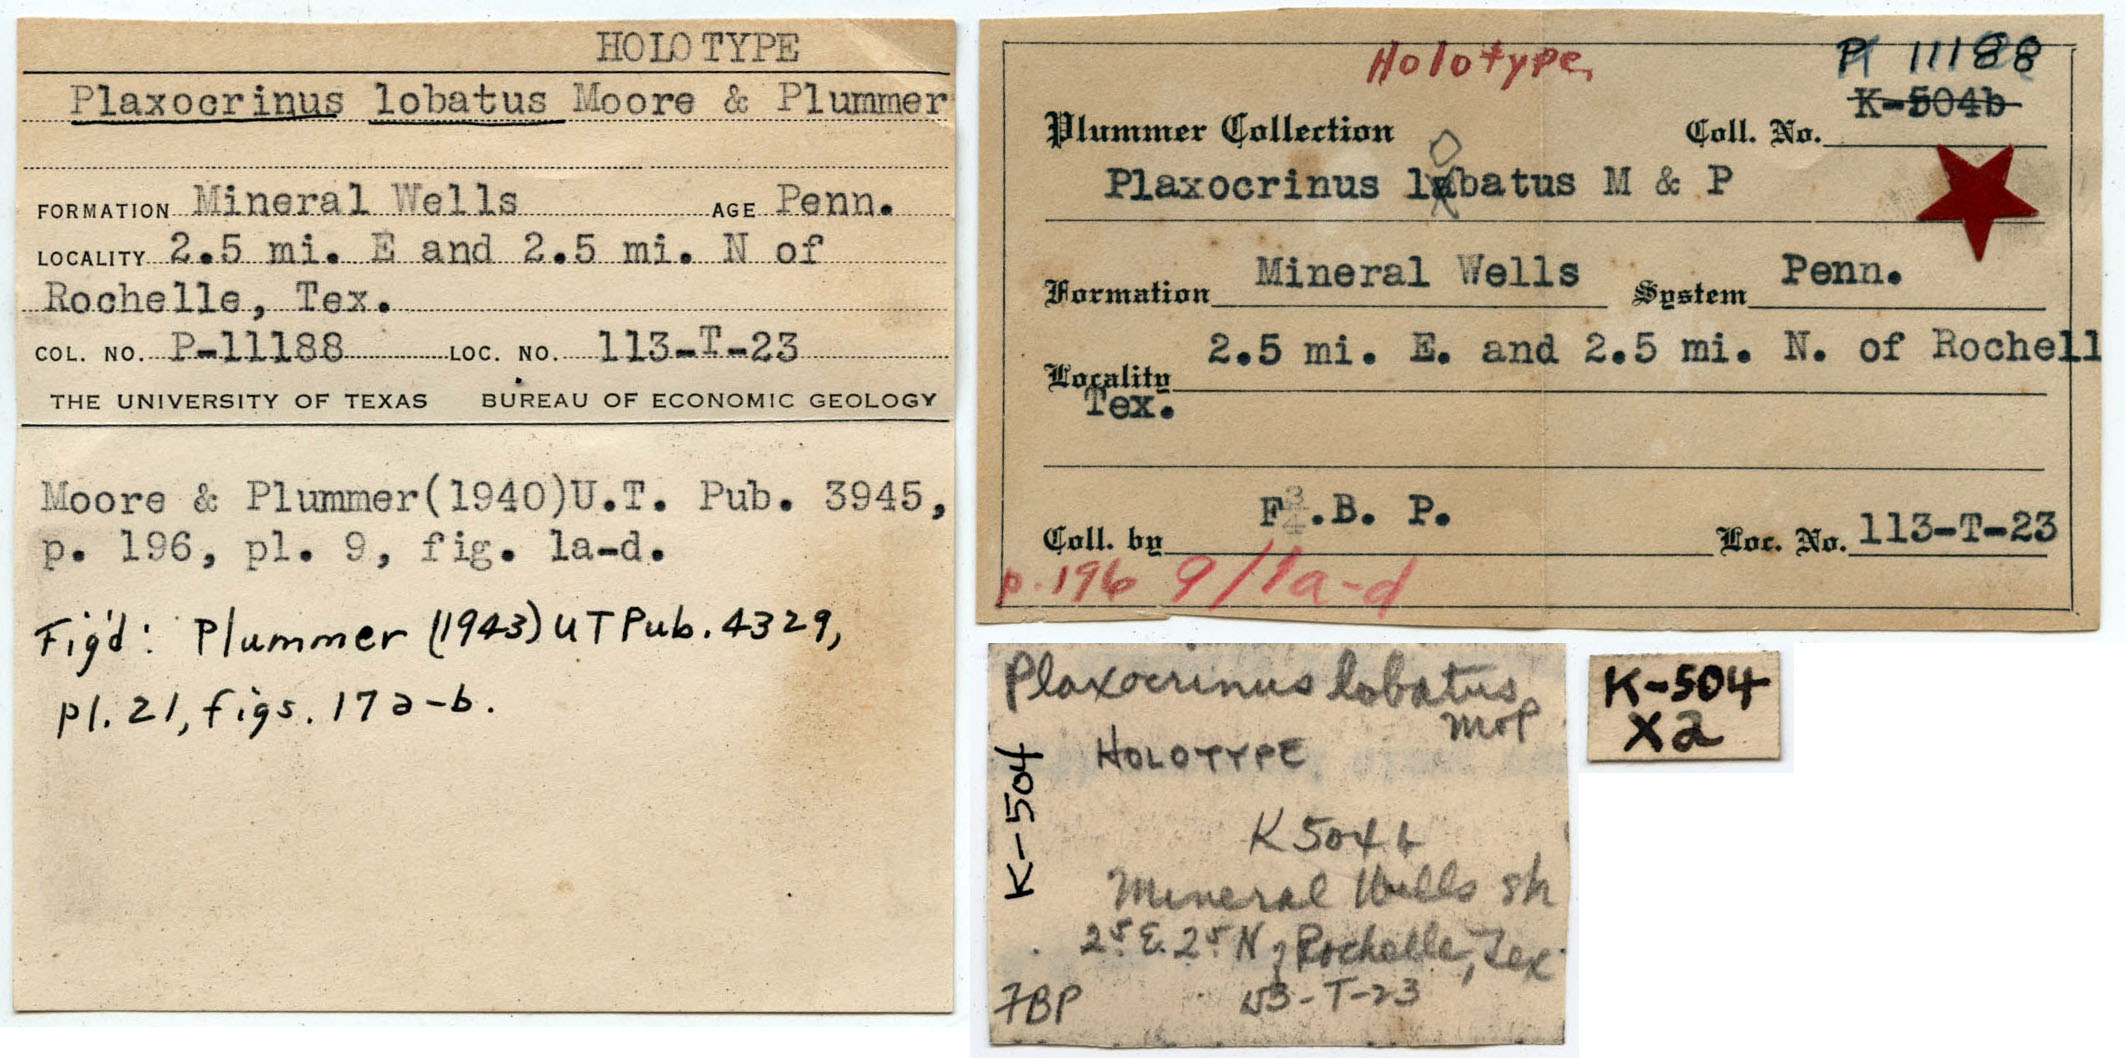 HOLOTYPE
Plaxocrinus lobatus Moore & Plummer
FORMATION Mineral Wells AGE Penn.
LOCALITY 2.5 mi. E and 2.5 mi. N of
Rochelle, Tex.
COL. NO. P-11188 LOC. NO. 113-T-23
THE UNIVERSITY OF TEXAS BUREAU OF ECONOMIC GEOLOGY
Moore & Plummer(1940)U.T. Pub. 3945,
p. 196, pl. 9, fig. 1a-d.
Fig'd: Plummer (1943) UT Pub. 4329,
pl. 21, figs. 17a-b.
Holotype
P 11188
K-504b
Plummer Collection Coll. No.
Plaxocrinus lobatus M & P
Formation Mineral Wells System Penn.
Locality 2.5 mi. E. and 2.5 mi. N. of Rochell
Tex.
Coll. by F.B. P. Loc. No. 113-T-23
p. 196 9/1a-d
Plaxocrinus lobatus
M&P
HOLOTYPE
K-504
K504b
Mineral Wells sh
2.5 E. 2.5 N of Rochelle, Tex.
FBP 113-T-23
K-504
X2